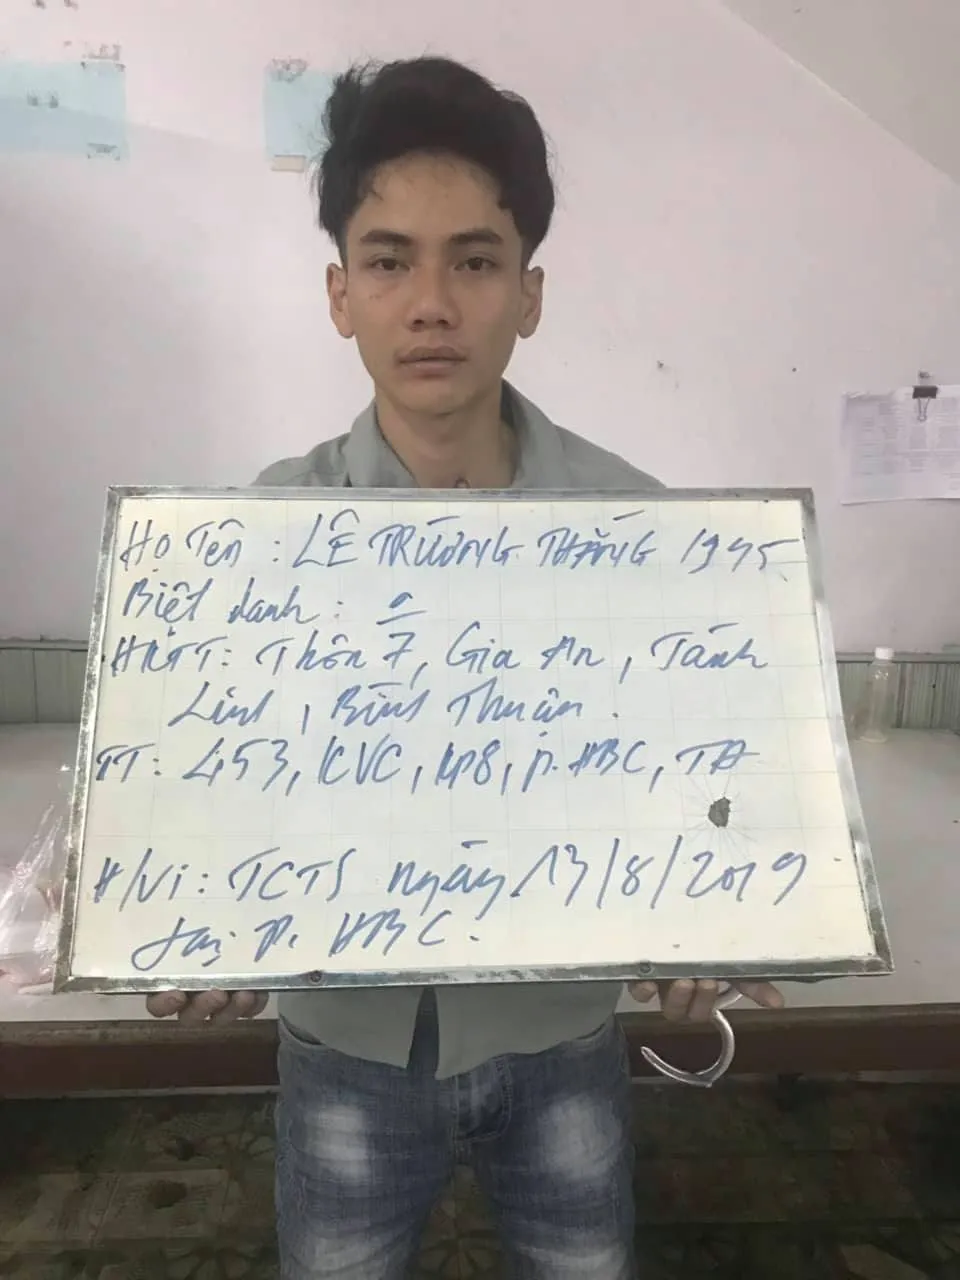 Họ Tên : LÊ TRƯỜNG THẮNG 1995
Biệt danh :
HKTT: Thôn 7, Gia An, Tánh
Linh, Bình Thuận.
TT: 453, KVC, KP8, P. HBC, TĐ
H/Vi: TCTS ngày 13/8/2019
tại P. HBC.